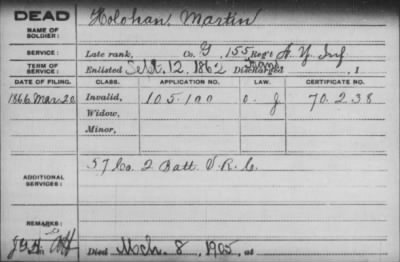 DEAD Holohan Martin
NAME OF SOLDIER:
SERVICE: Late rank, Co. G, 155 Reg't N.Y. Inf
TERM OF SERVICE: Enlisted Sept. 12, 1862 Discharged , 1
DATE OF FILING. CLASS. APPLICATION NO. LAW. CERTIFICATE NO.
1866 Mar 20 Invalid, 105.100 O. J 70.238
Widow,
Minor,
ADDITIONAL SERVICES: 57 Co. 2 Batt. V.R.C.
REMARKS:
Died Mch. 8, 1905, at